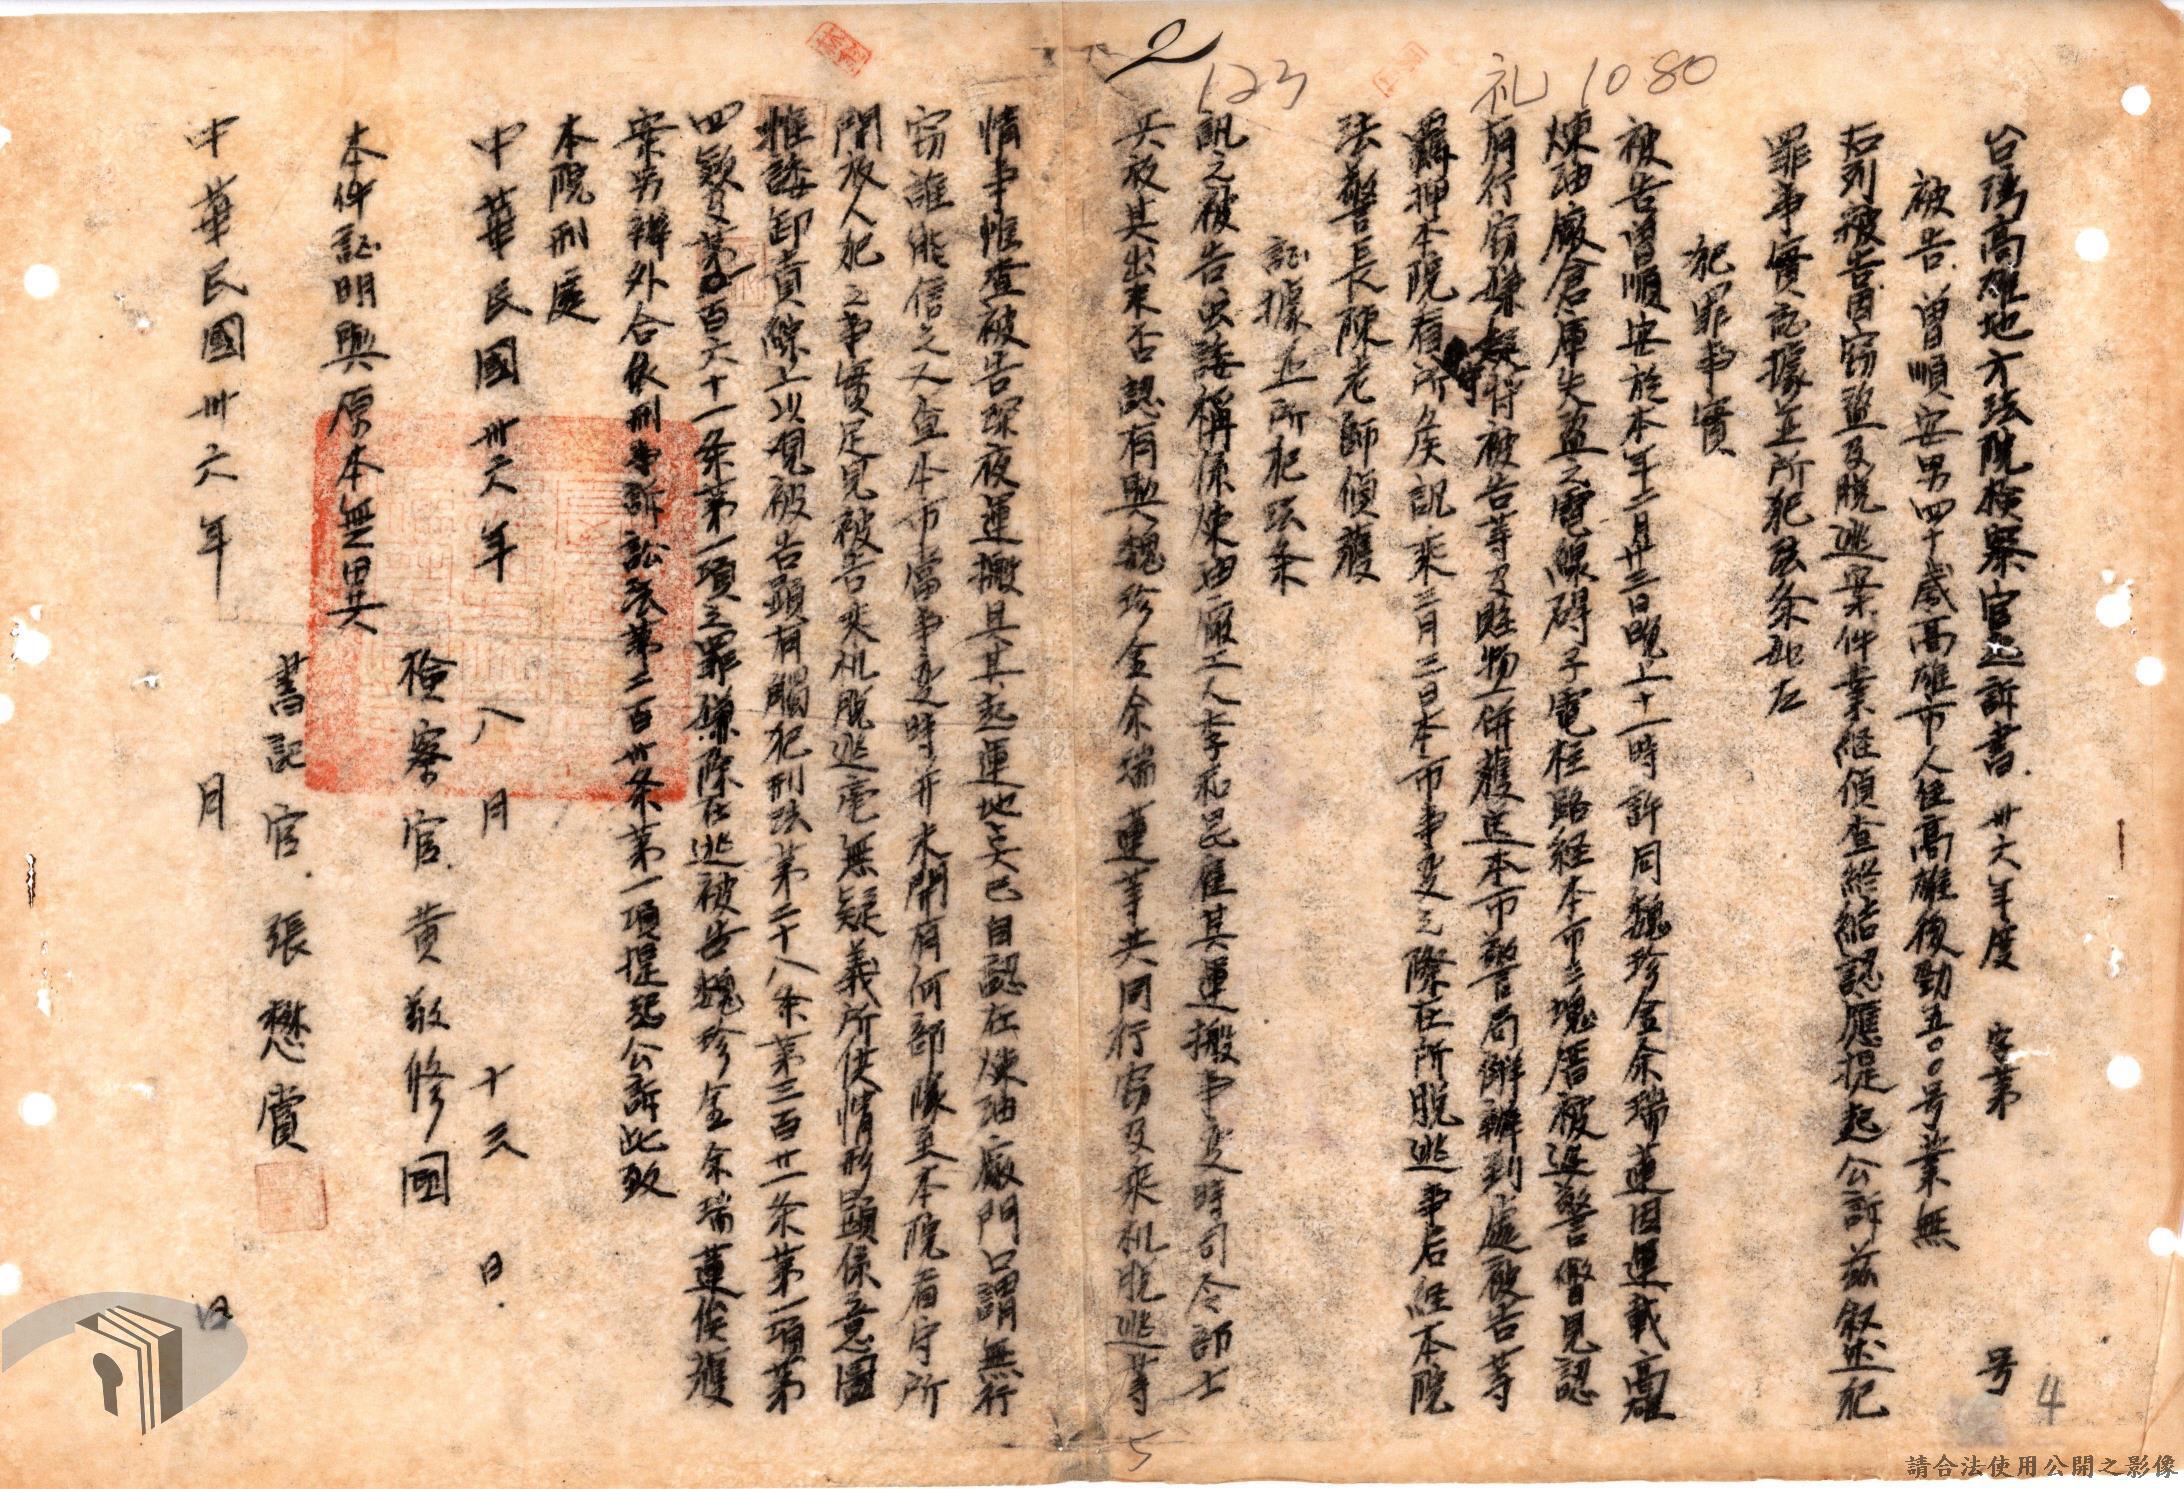 2
123
礼 1080
台灣高雄地方法院檢察官起訴書 卅六年度 字第 号
被告 曾順安男四十歲高雄市人住高雄後勁五〇〇号業無
右列被告因窃盜及脫逃案件業経偵查終結認應提起公訴茲叙述犯
罪事實証據並所犯法条如左
犯罪事實
被告曾順安於本年二月廿三日晚上十一時許同魏珍金余瑞蓮因運載高雄
煉油廠倉庫失盜之電線碍子電柱路経本市三塊厝被巡警瞥見認
有行窃嫌疑将被告等及賍物一併獲送本市警局解辦到處被告等
羈押本院看守所候訊乘三月三日本市事変之際在所脫逃事后経本院
法警長陳老師偵獲
証據並所犯法条
訊之被告虽諉稱係煉油廠工人李𠮷昆雇其運搬事変時司令部士
兵放其出来否認有與魏珍金余瑞蓮等共同行窃及乘机脫逃等
情事惟查被告深夜運搬且其起運地点已自認在煉油廠門口謂無行
窃誰能信之又查本市當事変時并未聞有何部隊至本院看守所
開放人犯之事實足見被告乘机脫逃毫無疑義所供情形顯係意圖
推諉卸責綜上以观被告顯有觸犯刑法第二十八条第三百廿一条第一項第
四欵及第一百六十一条第一項之罪嫌除在逃被告魏珍金余瑞蓮俟獲
案另辦外合依刑事訴訟法第二百卅条第一項提起公訴此致
本院刑庭
中華民國卅六年 八 月 十六 日
檢察官 黄敬修 國
本件証明與原本無異
書記官 張懋賞
中華民國卅六年 月 日
4
5
請合法使用公開之影像